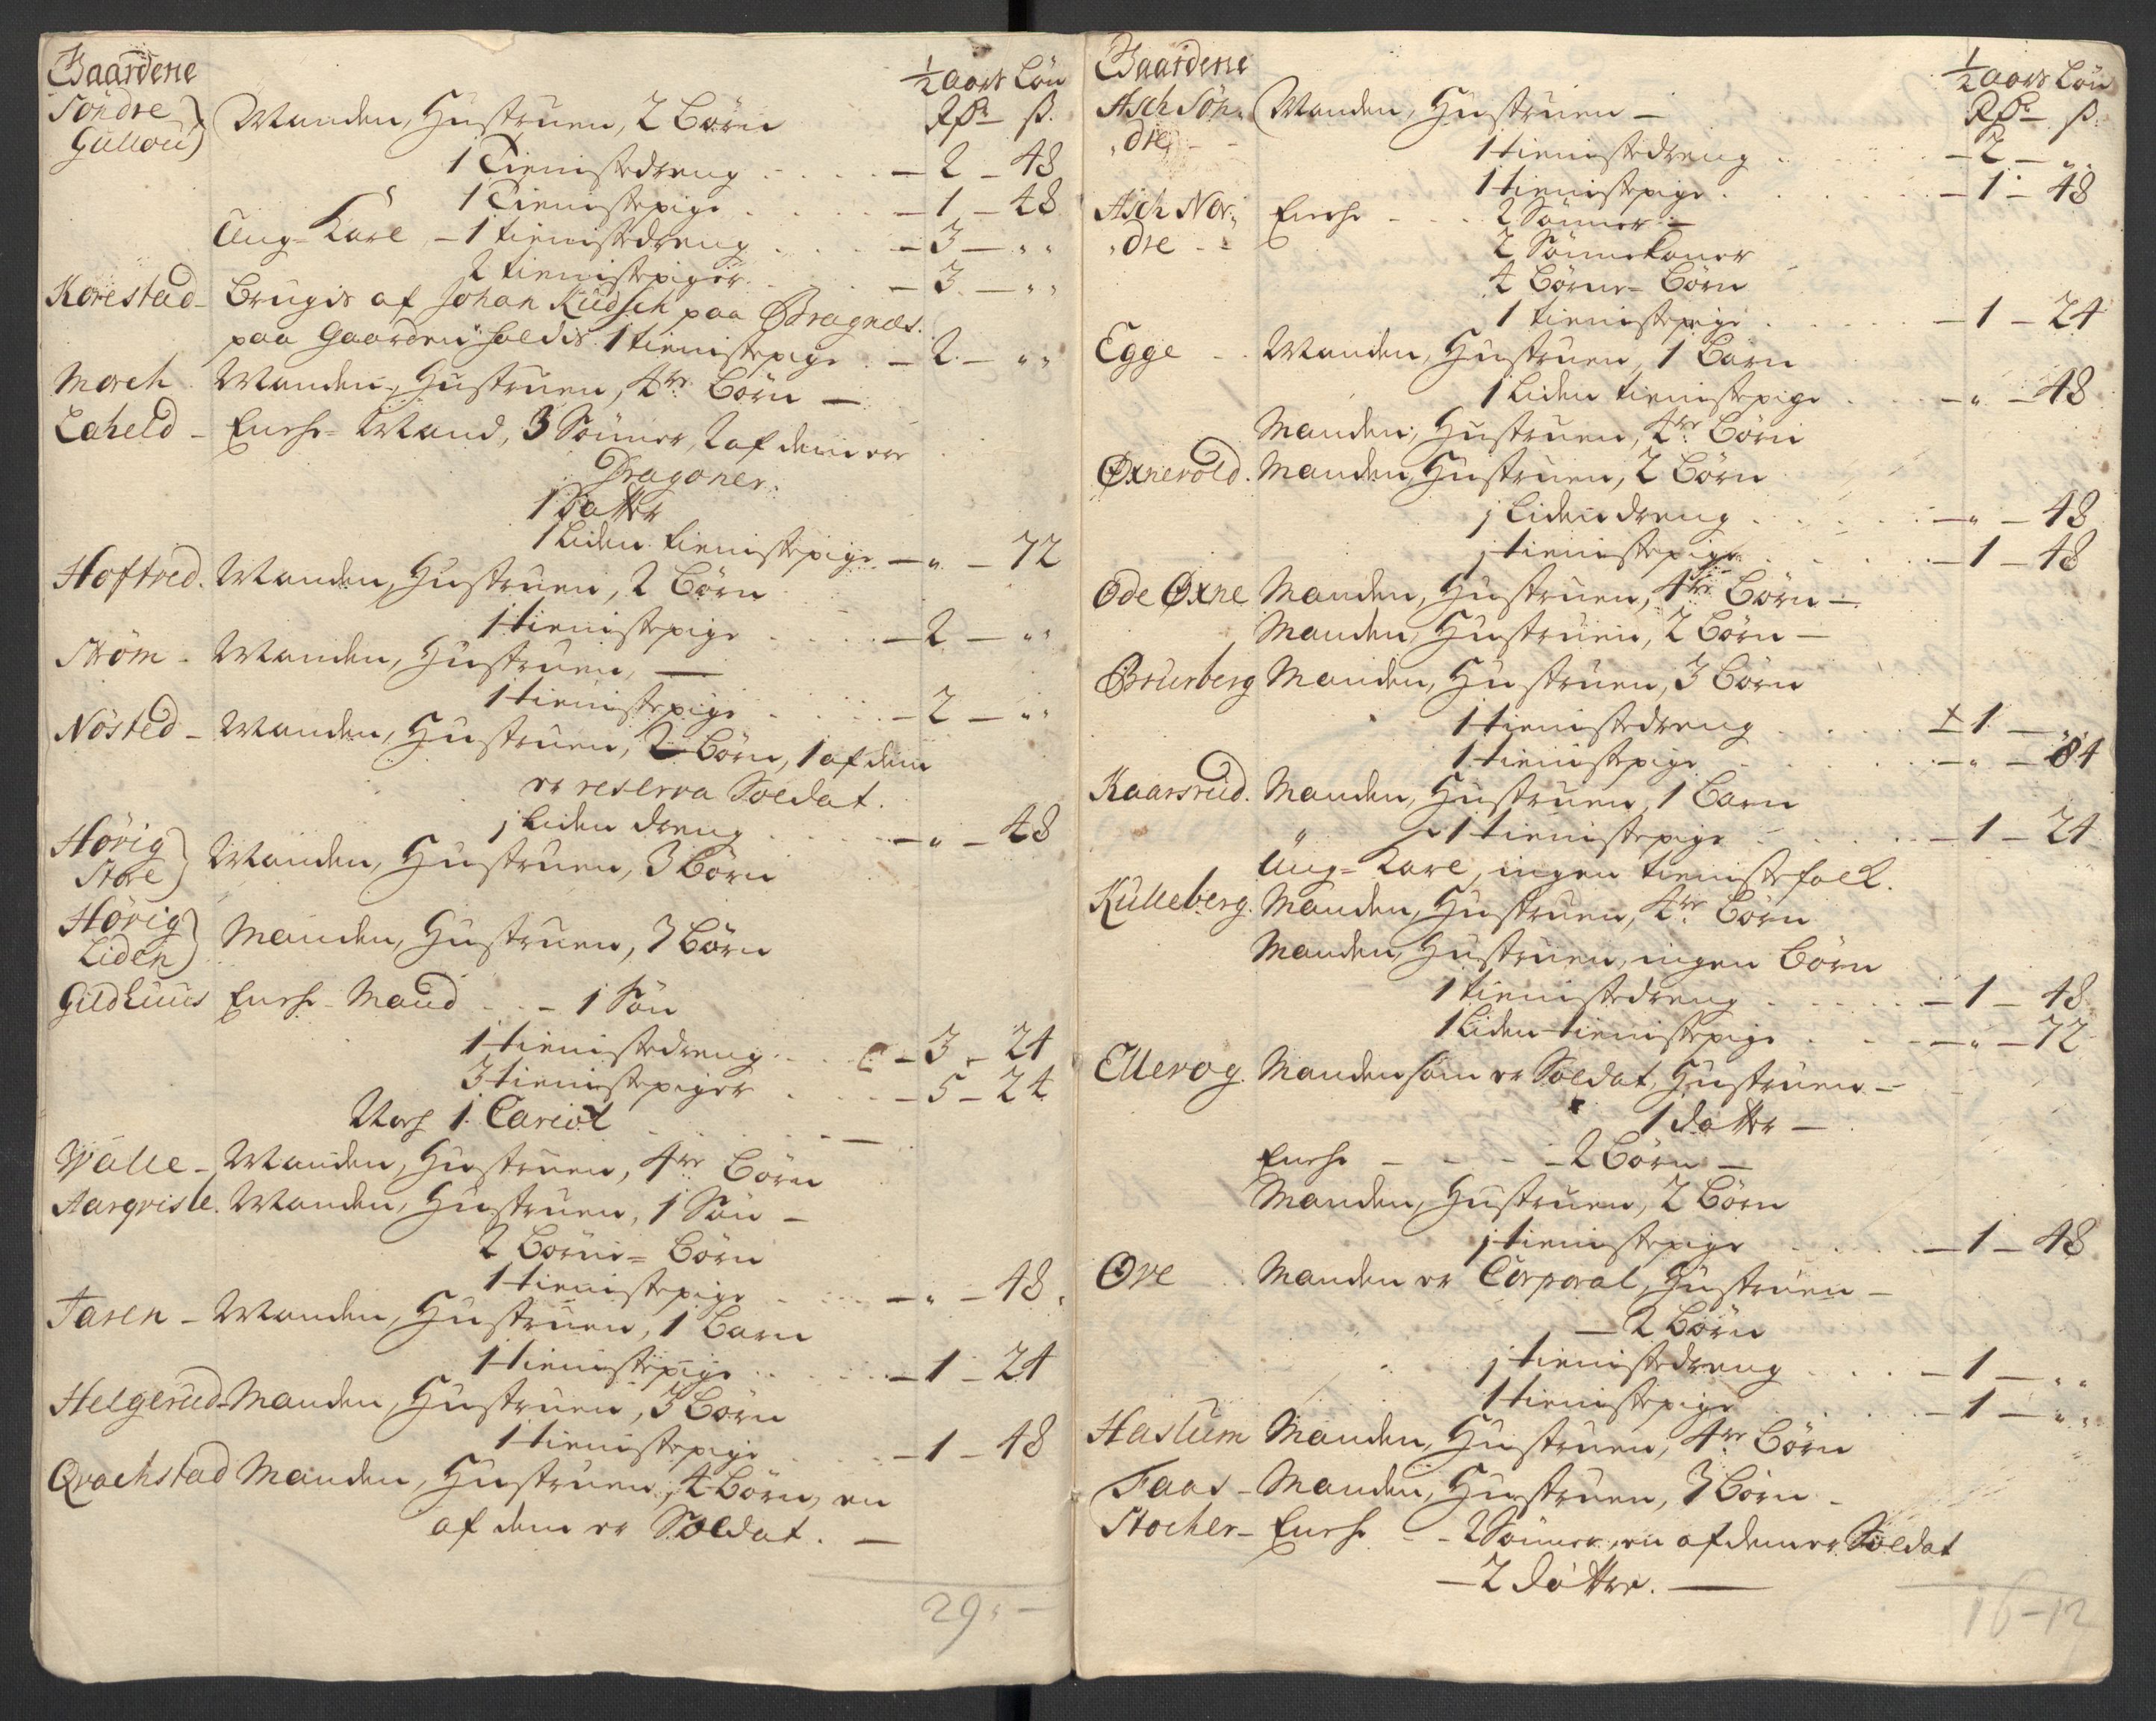 Gaardene
½ aars Løn
Søndre Gullou) Manden, Hustruen, 2 Børn
Rdr ß.
1 Tienistedreng - 2 - 48
1 Tienistepige - 1 - 48
Ung-Karl - 1 tienistedreng - 3 - "
2 tienistepiger - 3 - "
Korestad - Brugis af Johan Kudsch paa Bragnæs.
paa Gaarden holdes 1 tienistepige - 2 - "
Morch Manden, Hustruen, 4re Børn -
Laheld - Enche-Mand, 3 Sønner, 2 af dem er
Dragoner.
1 Datter
1 Liden tienistepige - " - 72
Hoftved. Manden, Hustruen, 2 Børn
1 tienistepige - 2 - "
Strøm - Manden, Hustruen, -
1 tienistepige - 2 - "
Nøsted - Manden, Hustruen, 2 Børn, 1 af dem
er reserva Soldat.
1 liden dreng - " - 48
Hørig Store) Manden, Hustruen, 3 Børn
Hørig Liden) Manden, Hustruen, 3 Børn
Gildhuus Enche-Mand - 1 Søn
1 tienistedreng - 3 - 24
3 tienistepiger - 5 - 24
Nock 1 Cariol -
Walle - Manden, Hustruen, 4re Børn
Aarqvisle. Manden, Hustruen, 1 Søn -
2 Børne-Børn
1 tienistepige - " - 48
Taren - Manden, Hustruen, 1 Barn
1 tienistepige - 1 - 24
Helgerud - Manden, Hustruen, 3 Børn
1 tienistepige - 1 - 48
Qvachstad Manden, Hustruen, 4 Børn, en
af dem er Soldat. -
29 " -
Gaardene
½ aars Løn
Asch Søndre - Manden, Hustruen -
Rdr ß.
1 tienistedreng - 2 - "
1 tienistepige - 1 - 48
Asch Nordre - Enche - 2 Sønner -
2 Sønnekoner
4 Børne-Børn
1 tienistepige - 1 - 24
Egge - Manden, Hustruen, 1 Barn
1 Liden tienistepige - " - 48
Manden, Hustruen, 4re Børn
Øxnevold. Manden, Hustruen, 2 Børn
1 Liden dreng - " - 48
1 tienistepige - 1 - 48
Øde Øxne Manden, Hustruen, 4re Børn -
Manden, Hustruen, 2 Børn -
Brurberg Manden, Hustruen, 3 Børn
1 tienistedreng + 1 - "
1 tienistepige - " - 84
Kaarsrud. Manden, Hustruen, 1 Barn
" 1 tienistepige - 1 - 24
Ung-Karl, ingen tienistefolk.
Kulleberg. Manden, Hustruen, 4re Børn
Manden, Hustruen, ingen Børn
1 tienistedreng - 1 - 48
1 Liden tienistepige - " - 72
Ellevog. Manden som er Soldat, Hustruen -
1 datter -
Enche - - - 2 Børn -
Manden, Hustruen, 2 Børn
1 tienistepige - 1 - 48
Ove Manden er Corporal, Hustruen -
- 2 Børn
1 tienistedreng - 1 - "
1 tienistepige - 1 - "
Haslum Manden, Hustruen, 4re Børn
Faas - Manden, Hustruen, 3 Børn -
Stocher - Enche - - 2 Sønner, en af dem er Soldat
- 2 døttre. -
16 - 12